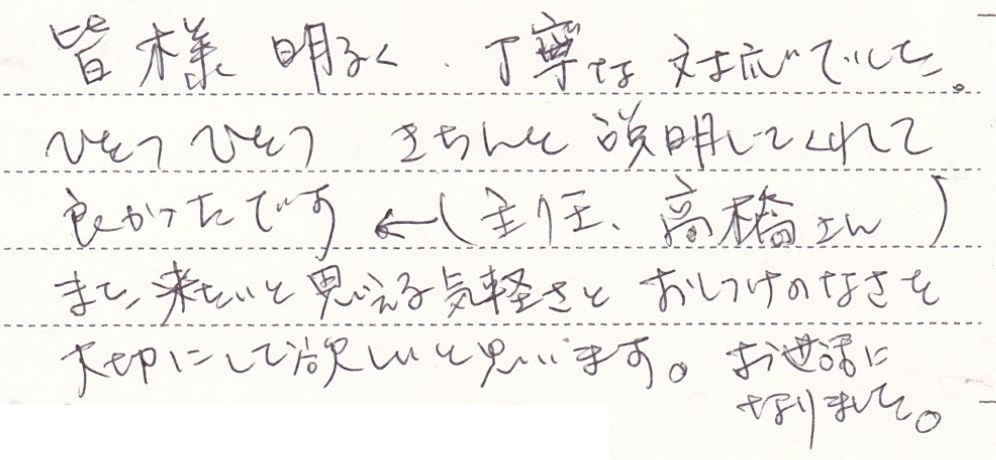 皆様 明るく、丁寧な対応でした。
ひとつひとつ きちんと説明してくれて
良かったです ←(主任、高橋さん)
また、来たいと思える気軽さと おしつけのなさを
大切にして欲しいと思います。お世話に
なりました。